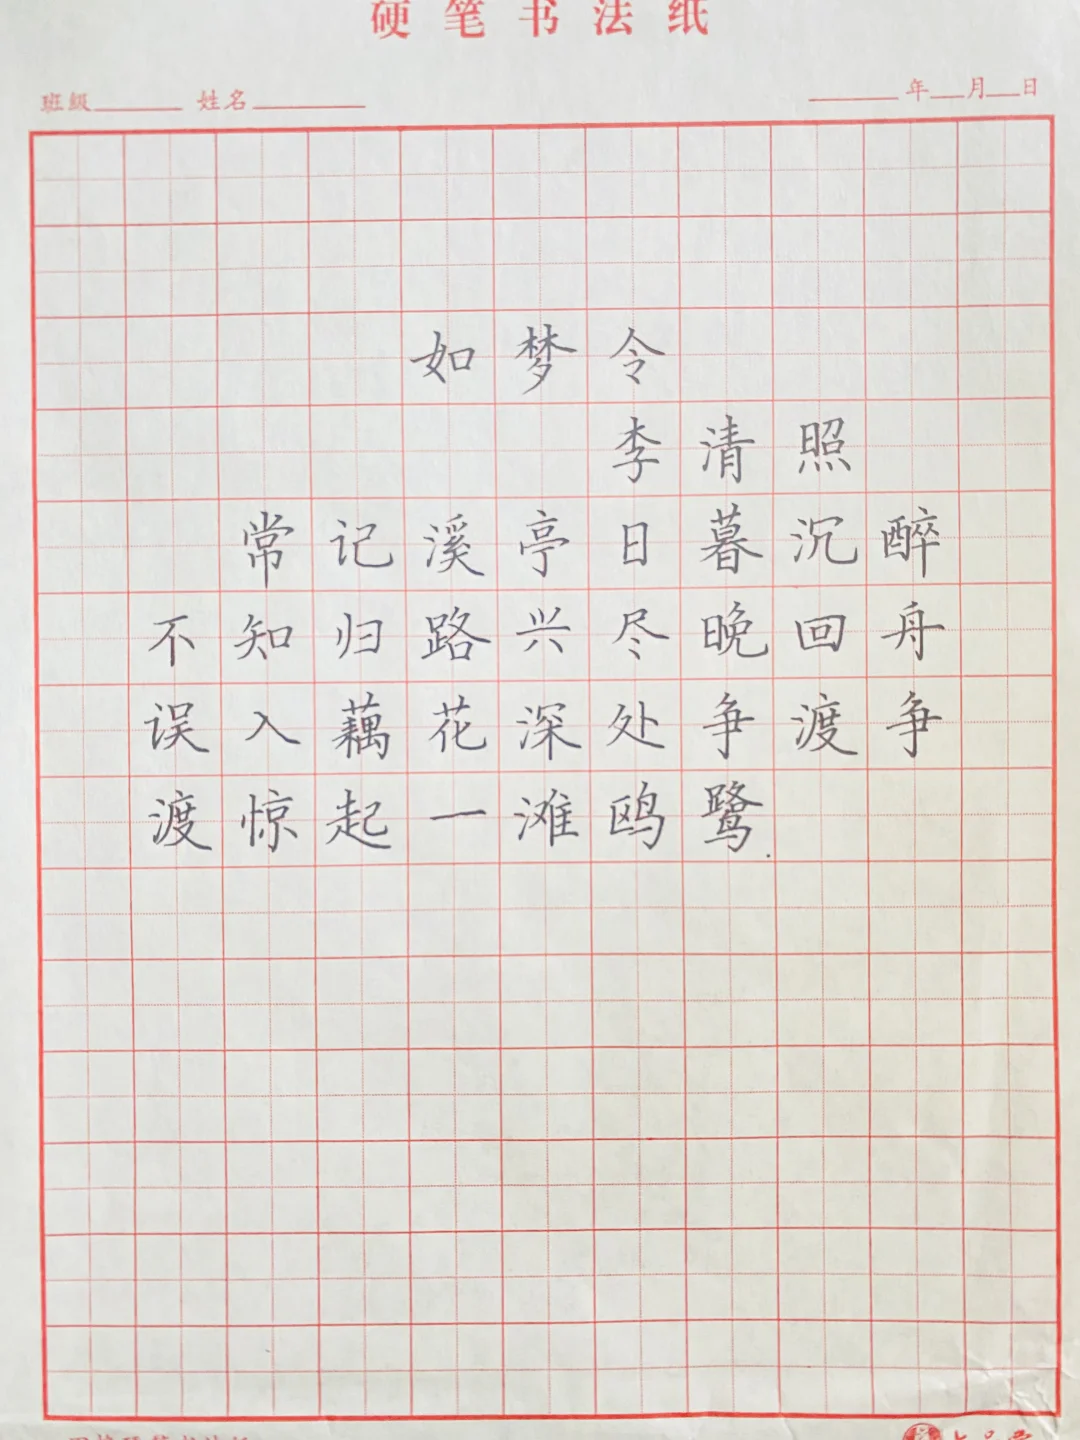 硬笔书法纸
班级 姓名 年 月 日
如梦令
李清照
常记溪亭日暮沉醉
不知归路兴尽晚回舟
误入藕花深处争渡争
渡惊起一滩鸥鹭.